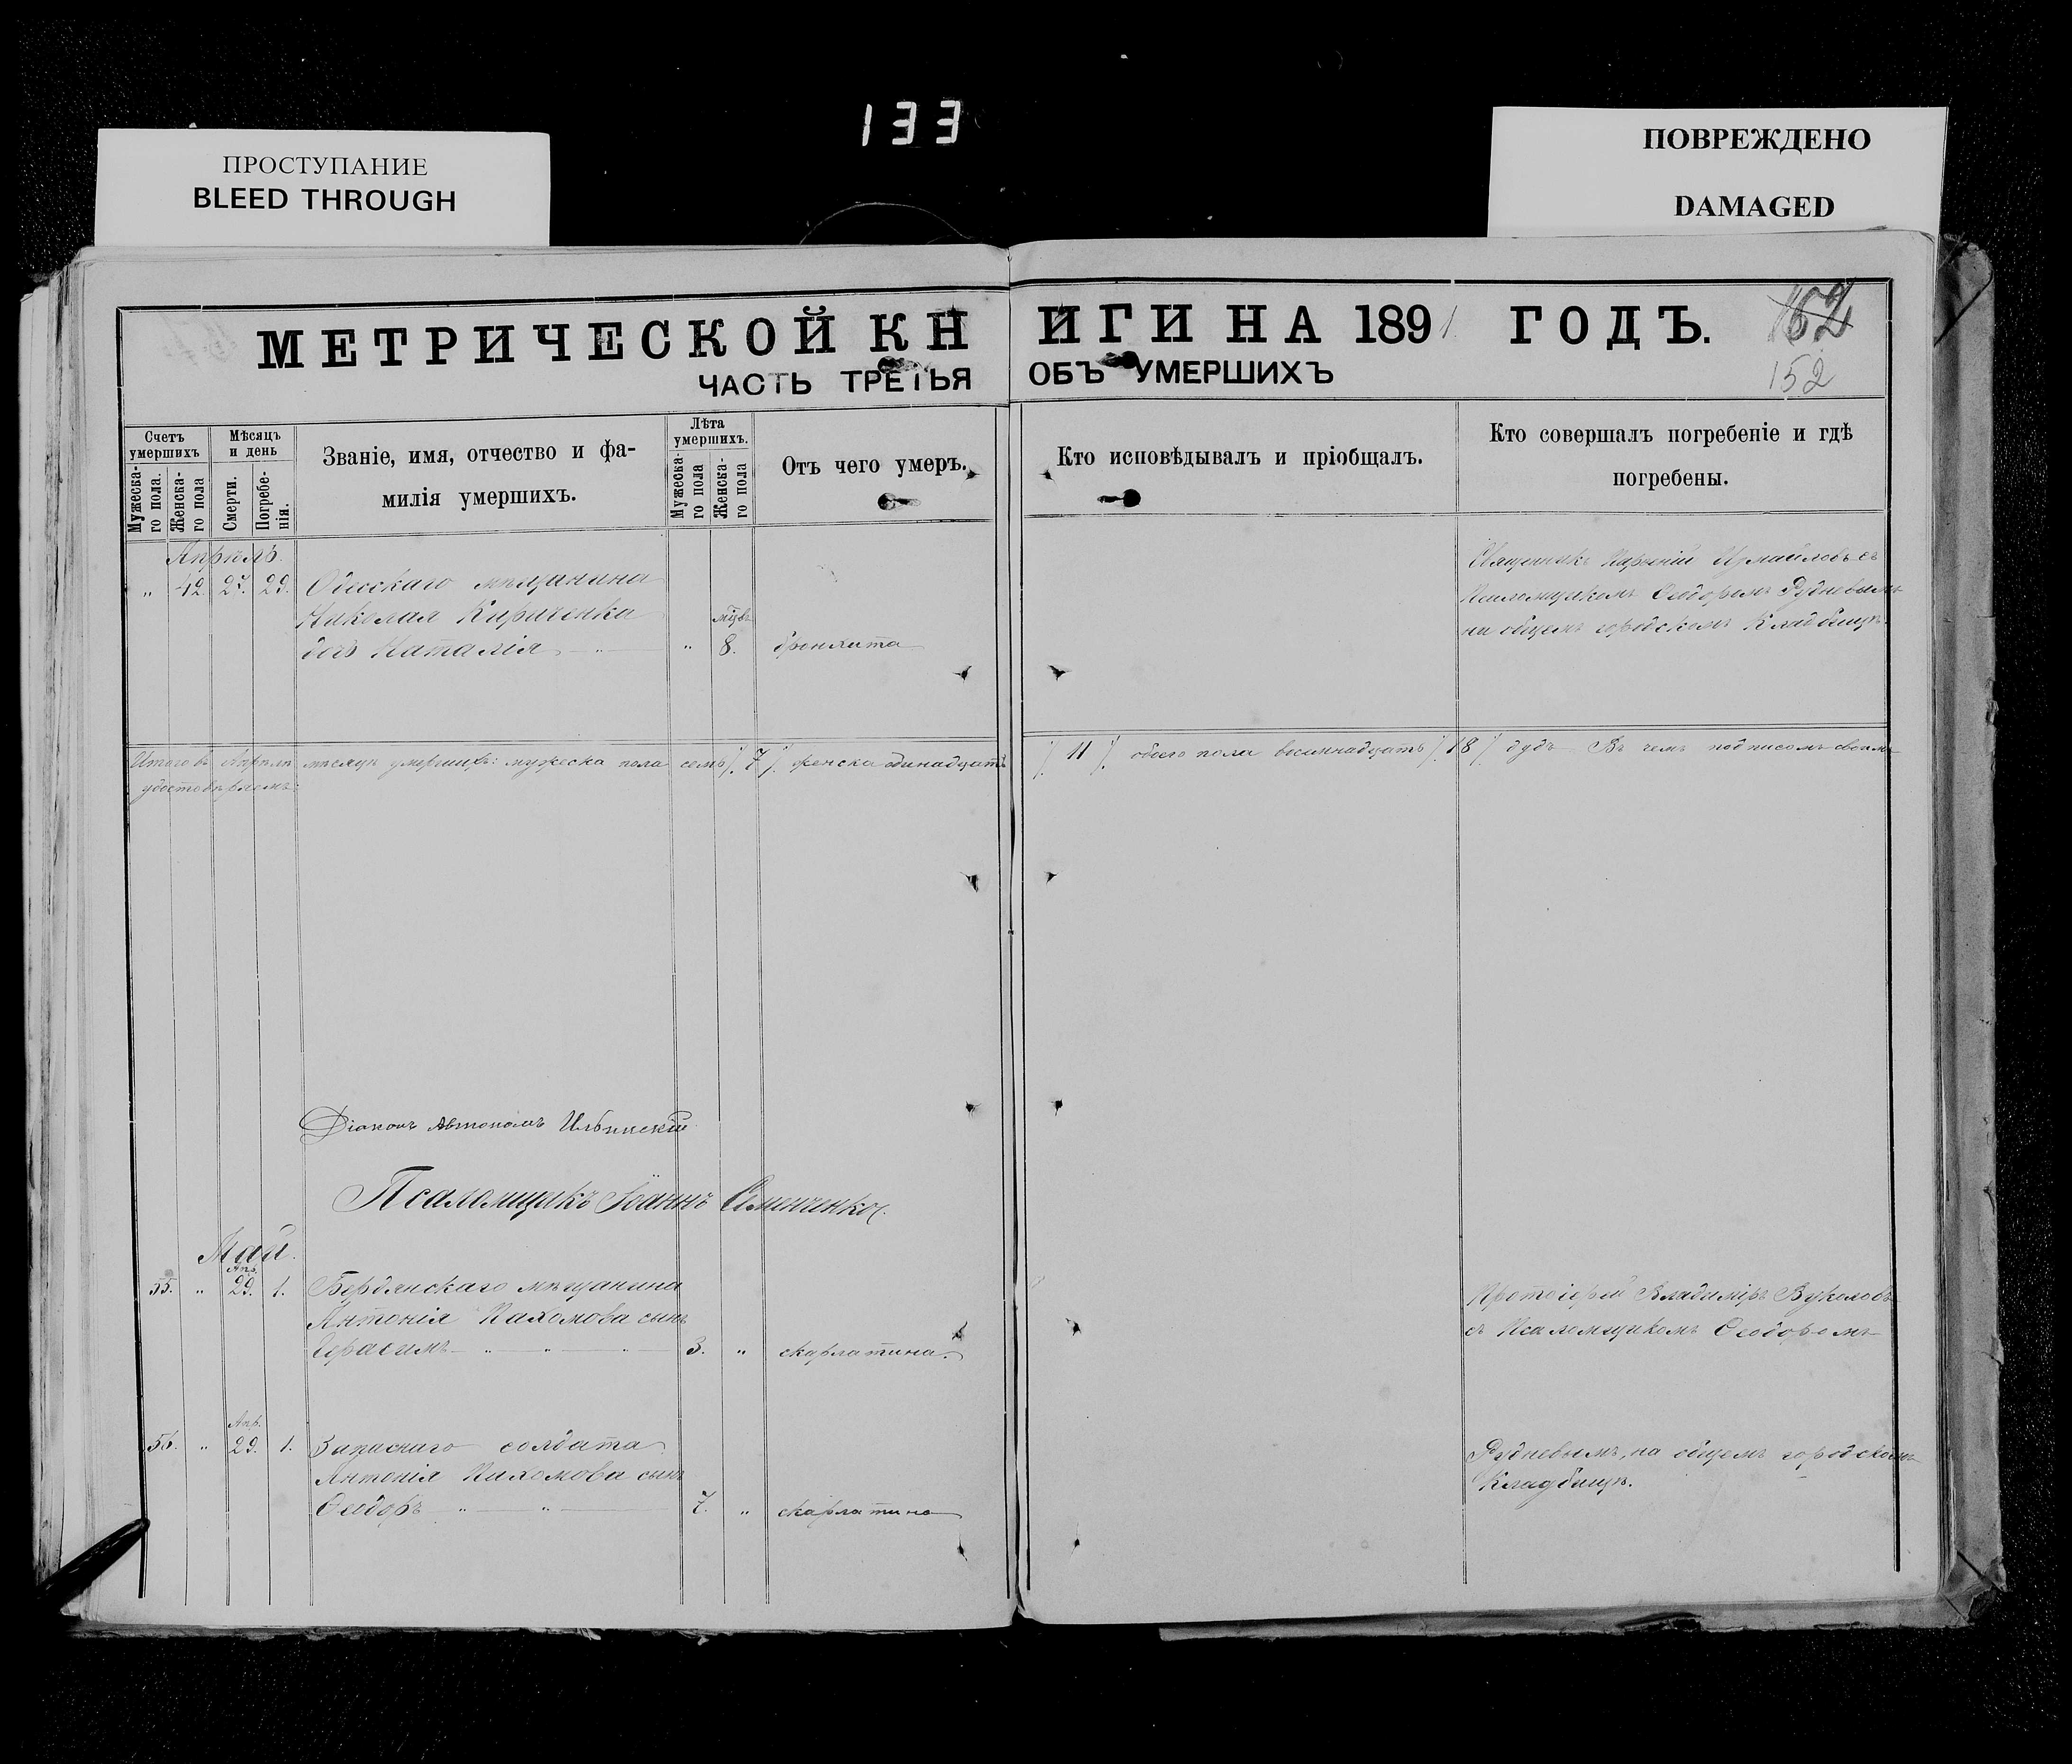 133
ПРОСТУПАНИЕ
BLEED THROUGH
ПОВРЕЖДЕНО
DAMAGED
МЕТРИЧЕСКОЙ КНИГИ НА 1891 ГОДЪ.
162
152
ЧАСТЬ ТРЕТЬЯ ОБЪ УМЕРШИХЪ
Счетъ умершихъ
Мужеска-го пола.
Женска-го пола
Мѣсяцъ и день
Смерти.
Погребе-нія.
Званіе, имя, отчество и фа-
милія умершихъ.
Лѣта умершихъ.
Мужеска-го пола
Женска-го пола
Отъ чего умеръ.
Кто исповѣдывалъ и пріобщалъ.
Кто совершалъ погребеніе и гдѣ
погребены.
Апрѣль.
„ 42 27. 29. Одесскаго мѣщанина
Николая Кириченка
дочь Наталія " " мѣсц. 8. бронхита
Священникъ Парѳеній Измайловъ съ
Псаломщикомъ Ѳеодоромъ Рудневымъ
на общемъ городскомъ кладбищѣ.
Итого въ Апрѣлѣ мѣсяцѣ умершихъ: мужеска пола семь /. 7 /. женска одинадцать /. 11 /. обоего пола восемнадцать /. 18 /. душъ. Въ чемъ подписомъ своимъ
удостовѣряемъ:
Діаконъ Автономъ Ильинскій
Псаломщикъ Іоаннъ Семенченко.
Май.
55. „ Апр. 29. 1. Бердянскаго мѣщанина
Антонія Пахомова сынъ
Герасимъ " " " 3. „ скарлатина.
Протоіерей Владиміръ Вуколовъ
съ Псаломщикомъ Ѳеодоромъ
56. „ Апр. 29. 1. Запаснаго солдата
Антонія Пахомова сынъ
Ѳеодоръ " " 7. „ скарлатина
Рудневымъ, на общемъ городскомъ
Кладбищѣ.